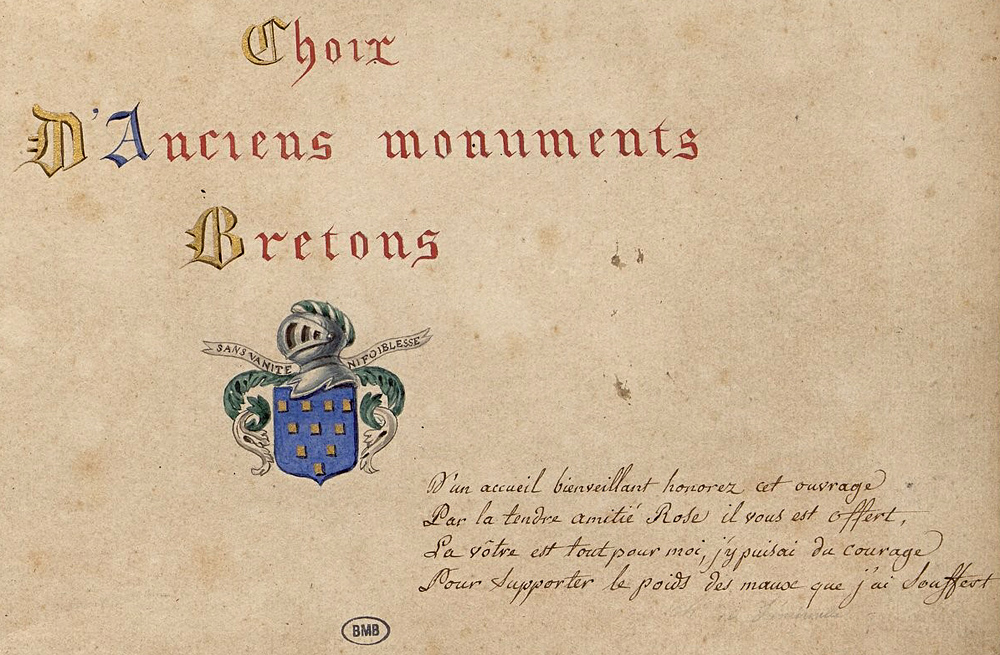 Choix
D'Anciens monuments
Bretons
SANS VANITE NI FOIBLESSE
D'un accueil bienveillant honorez cet ouvrage
Par la tendre amitié Rose il vous est offert,
La vôtre est tout pour moi, j'y puisai du courage
Pour supporter le poids des maux que j'ai souffert
BMB